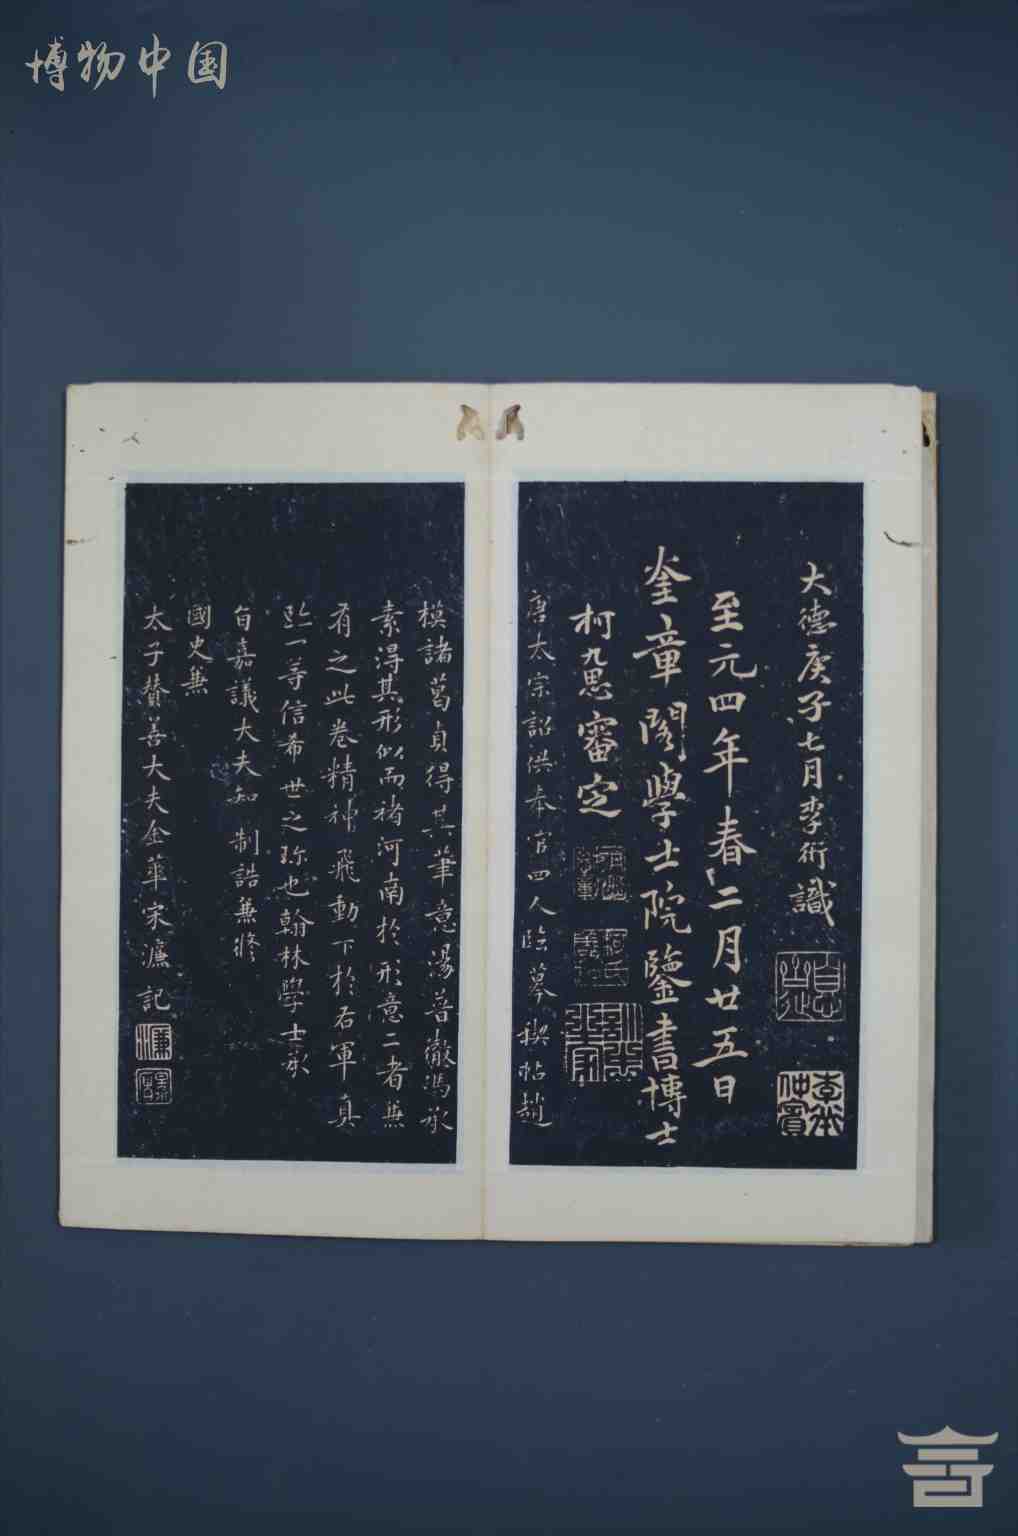 博物中国
大德庚子七月李衎識
李衎
仲賓
至元四年春二月廿五日
奎章閣學士院鑒書博士
柯九思審定
唐太宗詔供奉官四人臨摹禊帖趙
模諸葛貞得其筆意湯普徹馮承
素得其形似而褚河南於形意二者兼
有之此卷精神飛動下於右軍真
跡一等信希世之珍也翰林學士承
旨嘉議大夫知制誥兼修
國史兼
太子贊善大夫金華宋濂記